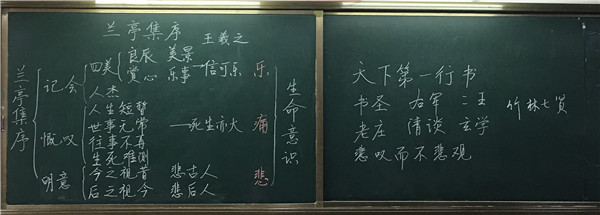 兰亭集序 王羲之
兰亭集序
记会
四美
良辰 美景
赏心 乐事
信可乐
乐
人杰
慨叹
人生短暂
世事无常
往事不再
生死难测
死生亦大
痛
明意
今之视昔 悲古人
后之视今 悲后人
悲
生命意识
天下第一行书
书圣 右军 二王
竹林七贤
老庄 清谈 玄学
悲叹而不悲观